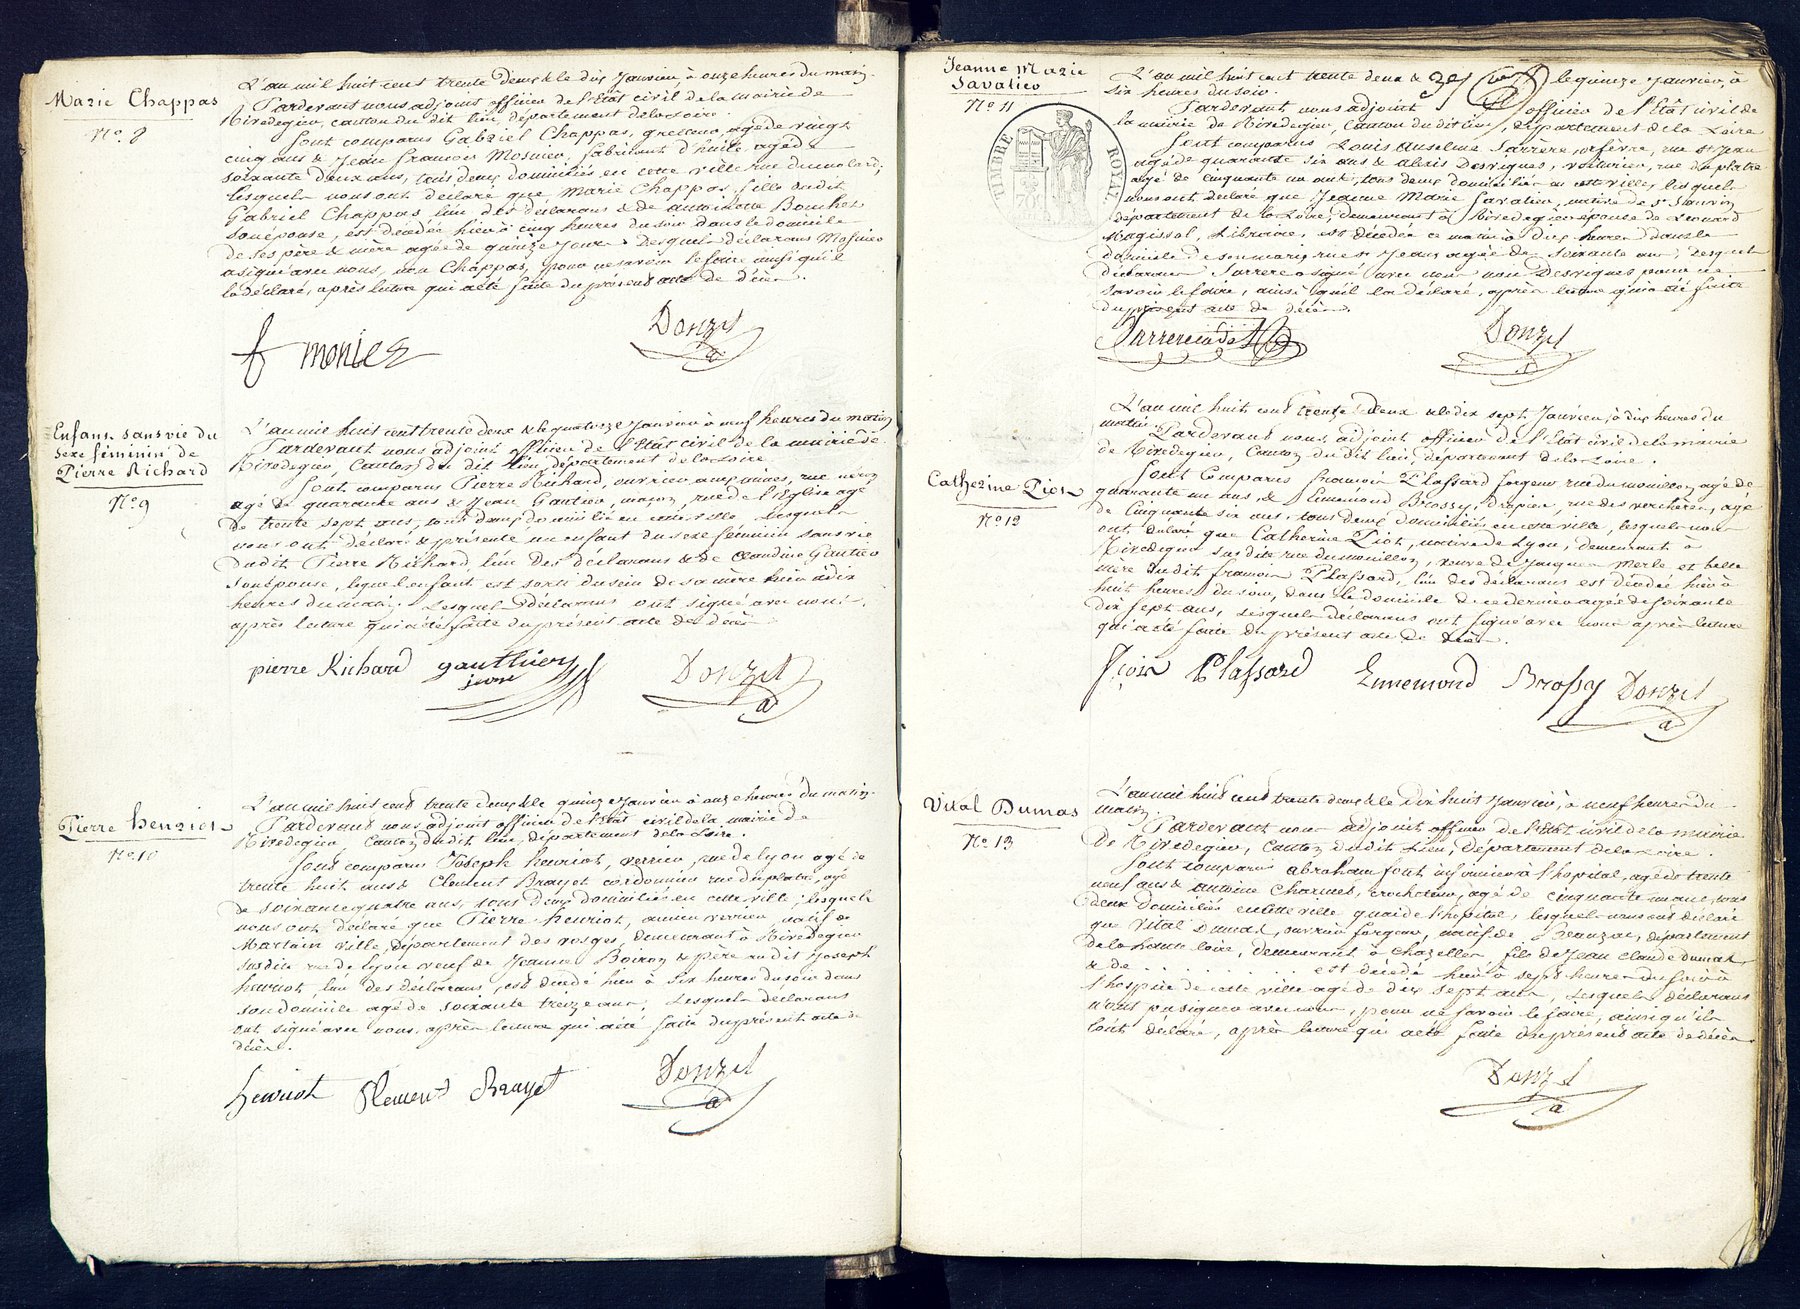 Marie Chappas
N.o 8
L'an mil huit cent trente deux & le dix Janvier, à onze heures du matin.
Pardevant nous adjoint officier de l'État civil de la mairie de
Rivedegier, canton du dit lieu, département de la Loire.
Sont comparus Gabriel Chappas, agé de vingt
cinq ans & Jean francois Mosnier, fabricant d'huile, agé de
soixante deux ans, tous deux domiciliés en cette ville rue du molard;
lesquels nous ont déclaré que Marie Chappas, fille du dit
Gabriel Chappas, l'un des déclarans & de antoinette Bouchet
son épouse, est décédée hier à cinq heures du soir dans le domicile
de ses père & mère agée de quinze jours. Desquels déclarans Mosnier
a signé avec nous, non Chappas, pour ne savoir le faire ainsi qu'il
la déclaré, après lecture qui a été faite du présent acte de décès.
f monier
Donzel
a
Enfant sans vie du
sexe féminin de
Pierre Richard
N.o 9
L'an mil huit cent trente deux & le quatorze Janvier à neuf heures du matin
Pardevant nous adjoint officier de l'État civil de la mairie de
Rivedegier, Canton du dit lieu, département de la Loire.
Sont comparus Pierre Richard, ouvrier aux mines, rue
agé de quarante ans & Jean Gautier, maçon, rue de l'Eglise agé
de trente sept ans, tous deux domiciliés en cette ville, lesquels
nous ont déclaré & présenté un enfant du sexe féminin sans vie
du dit Pierre Richard, l'un des déclarans & de Claudine Gautier
son épouse, lequel enfant est sorti du sein de sa mère hier à dix
heures du matin. Lesquels déclarans ont signé avec nous,
après lecture qui a été faite du présent acte de décès
pierre Richard gauthier
jeune
Donzel
a
Pierre henriot
N.o 10
L'an mil huit cent trente deux & le quinze Janvier à onze heures du matin.
Pardevant nous adjoint officier de l'État civil de la mairie de
Rivedegier, Canton du dit lieu, département de la Loire.
Sont comparus Joseph henriot, verrier, rue de Lyon agé de
trente huit ans & Clement Brayet cordonnier rue du plâtre, agé
de soixante quatre ans, tous deux domiciliés en cette ville; lesquels
nous ont déclaré que Pierre henriot, ancien verrier, natif de
Martain ville, département des vosges, demeurant à Rivedegier
susdite rue de Lyon veuf de Jeanne Boiron & père du dit Joseph
henriot, l'un des déclarans, est décédé hier à six heures du soir dans
son domicile agé de soixante treize ans; Lesquels déclarans
ont signé avec nous, après lecture qui a été faite du présent acte de
décès.
henriot Clement Brayet Donzel
a
Jeanne Marie
Savatier
N.o 11
TIMBRE ROYAL
70
L'an mil huit cent trente deux & le quinze Janvier, à
six heures du soir.
Pardevant nous adjoint officier de l'État civil de
la mairie de Rivedegier, Canton du dit lieu, département de la Loire
Sont comparus Louis Anselme Sarrere, orfévre, rue St Jean
agé de quarante six ans & alexis Desvignes, voiturier, rue du plâtre
agé de cinquante un ans, tous deux domiciliés en cette ville, lesquels
nous ont déclaré que Jeanne Marie Savatier, native de St
département de la Loire, demeurant à Rivedegier épouse de Leonard
Magissol, Libraire, est décédée ce matin à dix heures dans le
domicile de son mari rue St Jean agée de soixante ans; Desquels
déclarans Sarrere a signé avec nous non Desvignes pour ne
savoir le faire, ainsi qu'il la déclaré, après lecture qui a été faite
du présent acte de décès.
Sarrere cadet
Donzel
a
Catherine Piot
N.o 12
L'an mil huit cent trente deux & le dix sept Janvier, à dix heures du
matin. Pardevant nous adjoint officier de l'État civil de la mairie
de Rivedegier, Canton du dit lieu, département de la Loire.
Sont Comparus francois Plassard forgeur rue du mouillon, agé de
quarante un ans, & Ennemond Brossy, Drapier, rue des verchères, agé
de Cinquante six ans, tous deux domiciliés en cette ville, lesquels nous
ont déclaré que Catherine Piot, native de Lyon, demeurant à
Rivedegier susdite rue du mouillon, veuve de Jacques Merle et belle
mère du dit francois Plassard, l'un des déclarans est décédée hier à
huit heures du soir, dans le domicile de ce dernier agée de soixante
dix sept ans, Lesquels déclarans ont signé avec nous après lecture
qui a été faite du présent acte de décès.
fçois Plassard Ennemond Brossy Donzel
a
Vital Dumas
N.o 13
L'an mil huit cent trente deux & le dix huit Janvier, à neuf heures du
matin.
Pardevant nous adjoint officier de l'État civil de la mairie
de Rivedegier, Canton du dit Lieu, département de la Loire.
Sont comparus abraham font infirmier à l'hopital, agé de trente
neuf ans & antoine Charmet, crocheteur, agé de cinquante un ans, tous
deux domiciliés en cette ville quai de l'hopital, lesquels nous ont déclaré
que Vital Dumas, ouvrier forgeur, natif de Beauzac, département
de la haute loire, demeurant à Chazelles, fils de Jean Claude Dumas
& de . . . . . . . . . . est décédé hier à sept heures du soir à
l'hospice de cette ville agé de dix sept ans, Lesquels déclarans
n'ont pu signer avec nous, pour ne savoir le faire, ainsi qu'ils
l'ont déclaré, après lecture qui a été faite du présent acte de décès.
Donzel
a